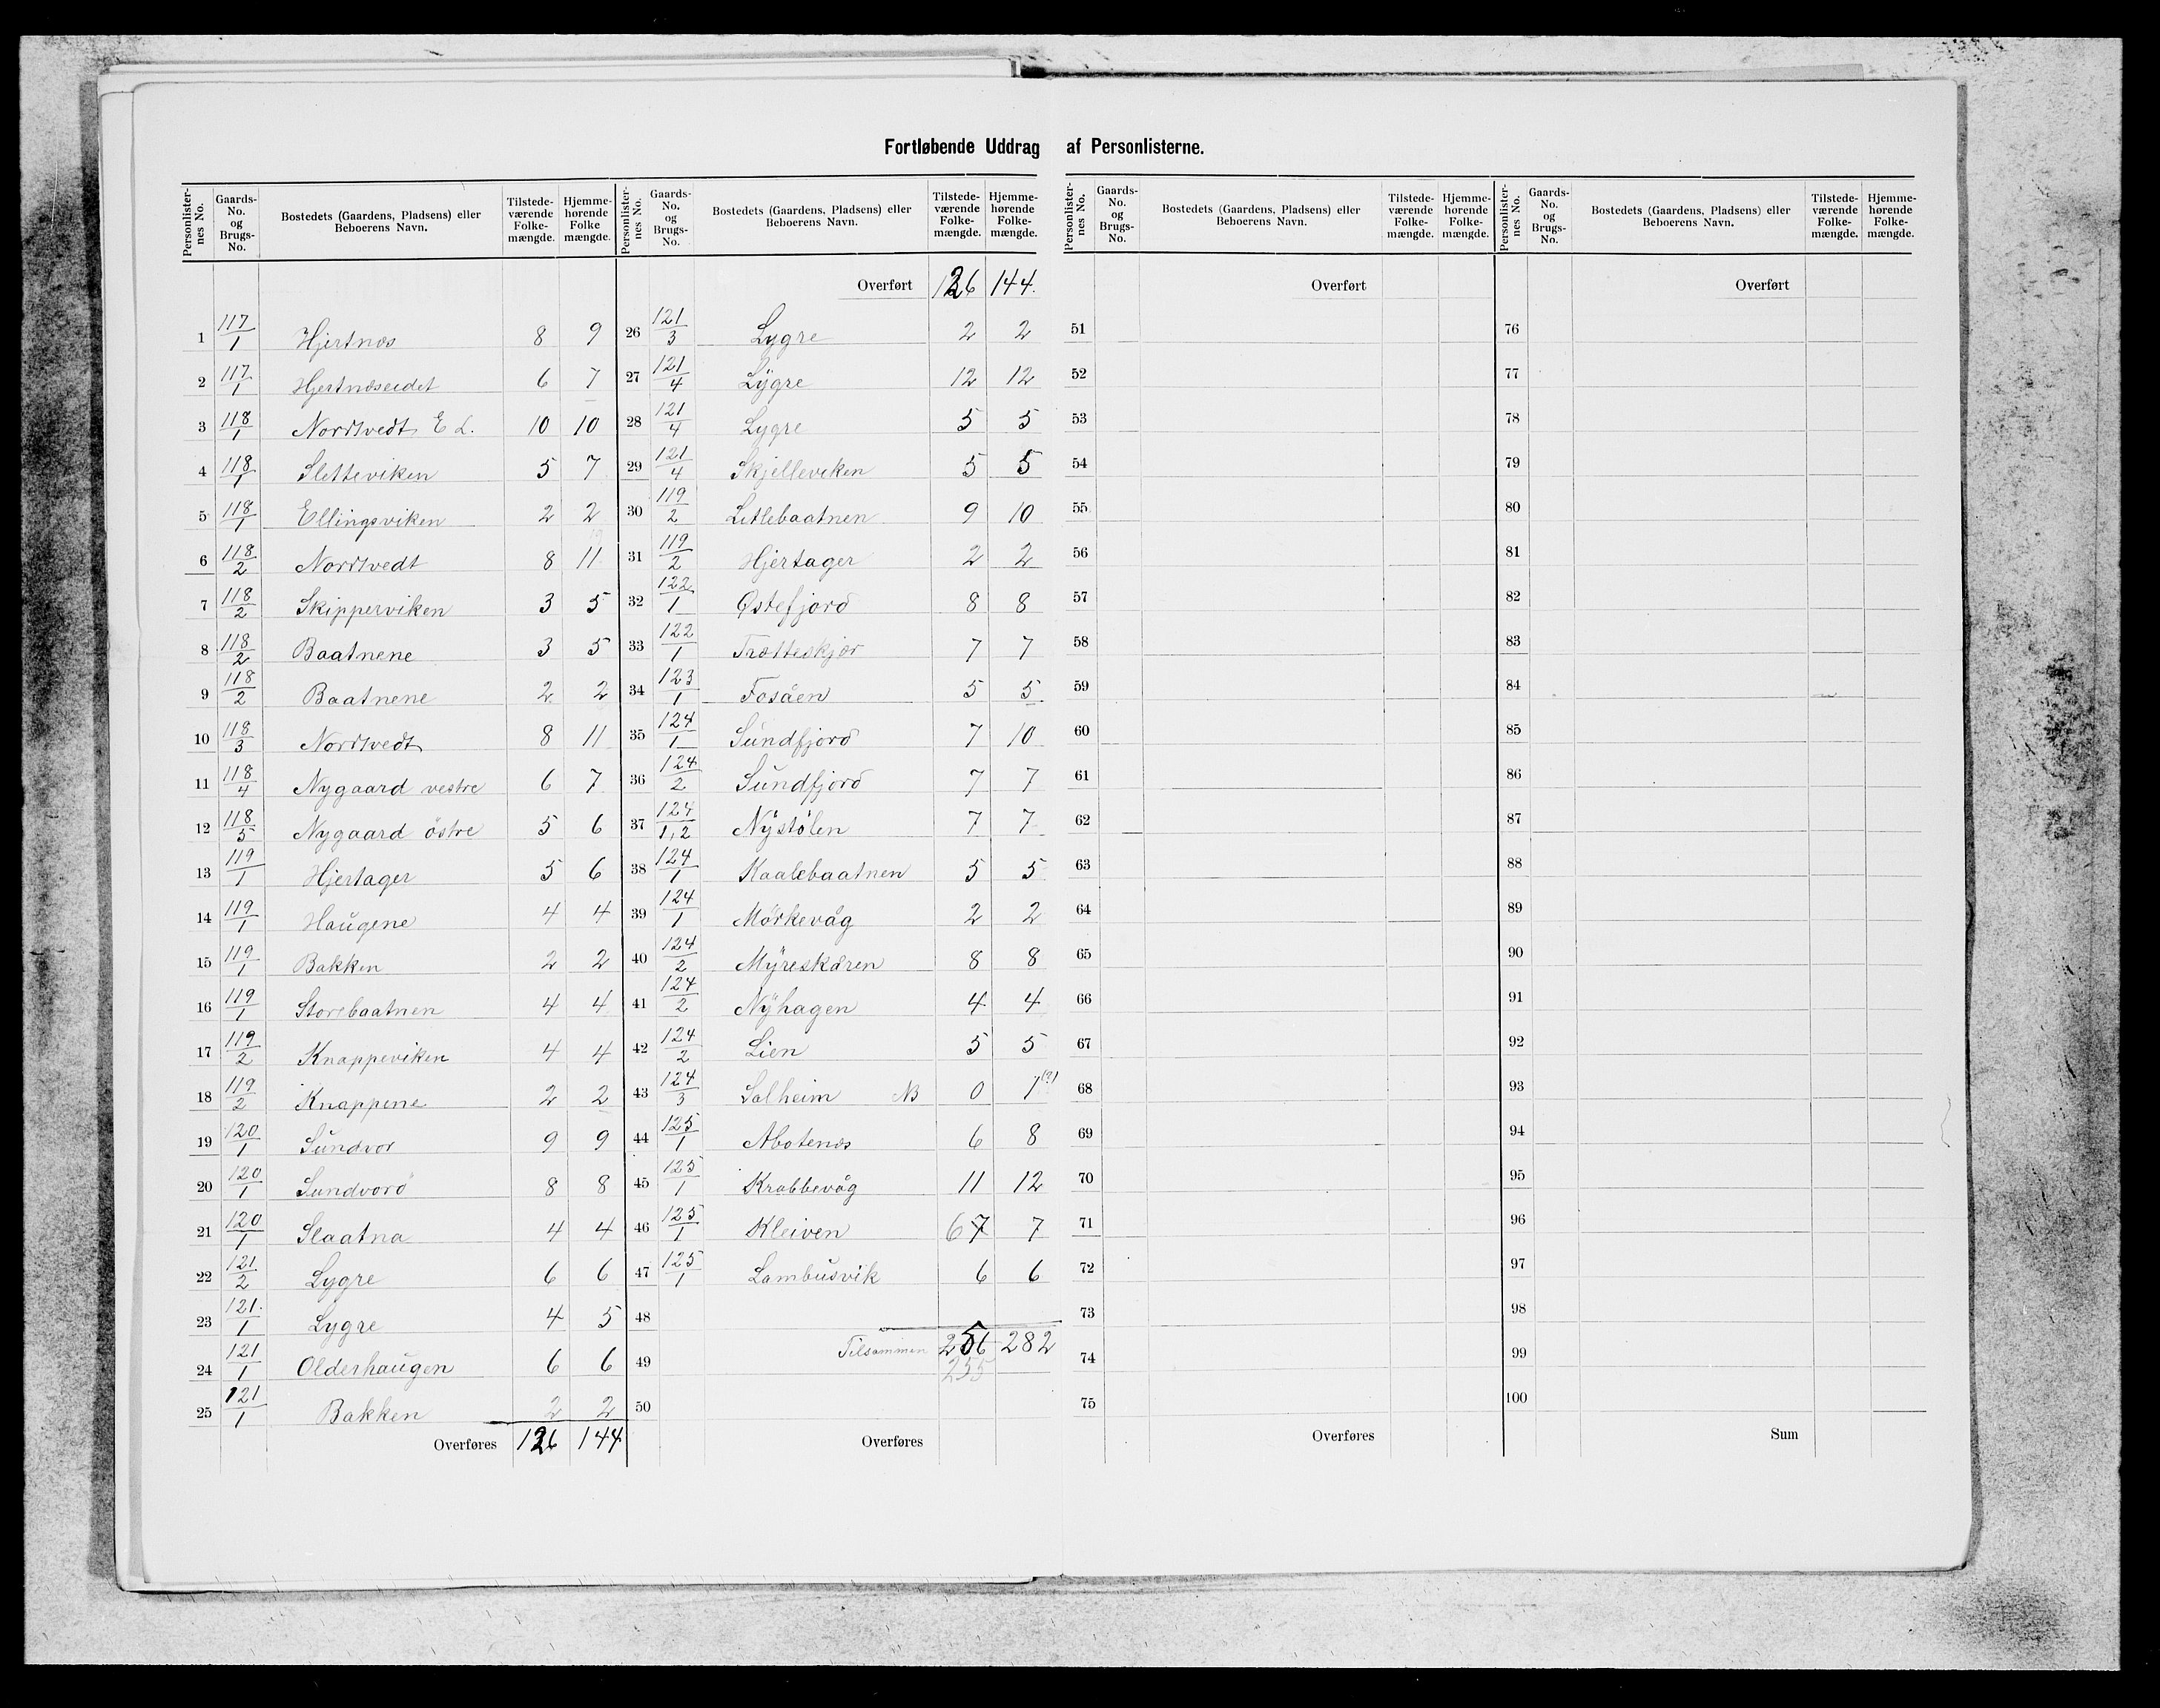 Fortløbende Uddrag af Personlisterne.
Personlister- nes No. | Gaards- No. og Brugs- No. | Bostedets (Gaardens, Pladsens) eller Beboerens Navn. | Tilstede- værende Folke- mængde. | Hjemme- hørende Folke mængde.
1 117/1 Hjertnæs 8 9
2 117/1 Hjertnæseidet 6 7
3 118/1 Nordtvedt E L. 10 10
4 118/1 Sletteviken 5 7
5 118/1 Ellingsviken 2 2
6 118/2 Nordtvedt 8 11
7 118/2 Skipperviken 3 5
8 118/2 Baatnene 3 5
9 118/2 Baatnene 2 2
10 118/3 Nordtvedt 8 11
11 118/4 Nygaard vestre 6 7
12 118/5 Nygaard östre 5 6
13 119/1 Hjertager 5 6
14 119/1 Haugene 4 4
15 119/1 Bakken 2 2
16 119/1 Storebaatnen 4 4
17 119/2 Knappeviken 4 4
18 119/2 Knappene 2 2
19 120/1 Sundvor 9 9
20 120/1 Sundvord 8 8
21 120/1 Slaatna 4 4
22 121/2 Lygre 6 6
23 121/1 Lygre 4 5
24 121/1 Olderhaugen 6 6
25 121/1 Bakken 2 2
Overføres 126 144
Personlister- nes No. | Gaards- No. og Brugs- No. | Bostedets (Gaardens, Pladsens) eller Beboerens Navn. | Tilstede- værende Folke- mængde. | Hjemme- hørende Folke- mængde.
Overført 126 144.
26 121/3 Lygre 2 2
27 121/4 Lygre 12 12
28 121/4 Lygre 5 5
29 121/4 Skjelleviken 5 5
30 119/2 Litlebaatnen 9 10
31 119/2 Hjertager 2 2
32 122/1 Østefjord 8 8
33 122/1 Trætteskjær 7 7
34 123/1 Fosåen 5 5
35 124/1 Sundfjord 7 10
36 124/2 Sundfjord 7 7
37 124/1,2 Nystölen 7 7
38 124/1 Kaalebaatnen 5 5
39 124/1 Mörkevåg 2 2
40 124/2 Myreskåren 8 8
41 124/2 Nyhagen 4 4
42 124/2 Lien 5 5
43 124/3 Solheim NB 0 1 (?)
44 125/1 Abotenæs 6 8
45 125/1 Krabbevåg 11 12
46 125/1 Kleiven 6 7 7
47 125/1 Lambusvik 6 6
48
49 Tilsammen 256 282
255
50
Overføres
Personlister- nes No. | Gaards- No. og Brugs- No. | Bostedets (Gaardens, Pladsens) eller Beboerens Navn. | Tilstede- værende Folke- mængde. | Hjemme- hørende Folke- mængde.
Overført
51
52
53
54
55
56
57
58
59
60
61
62
63
64
65
66
67
68
69
70
71
72
73
74
75
Overføres
Personlister- nes No. | Gaards- No. og Brugs- No. | Bostedets (Gaardens, Pladsens) eller Beboerens Navn. | Tilstede- værende Folke- mængde. | Hjemme- hørende Folke- mængde.
Overført
76
77
78
79
80
81
82
83
84
85
86
87
88
89
90
91
92
93
94
95
96
97
98
99
100
Sum